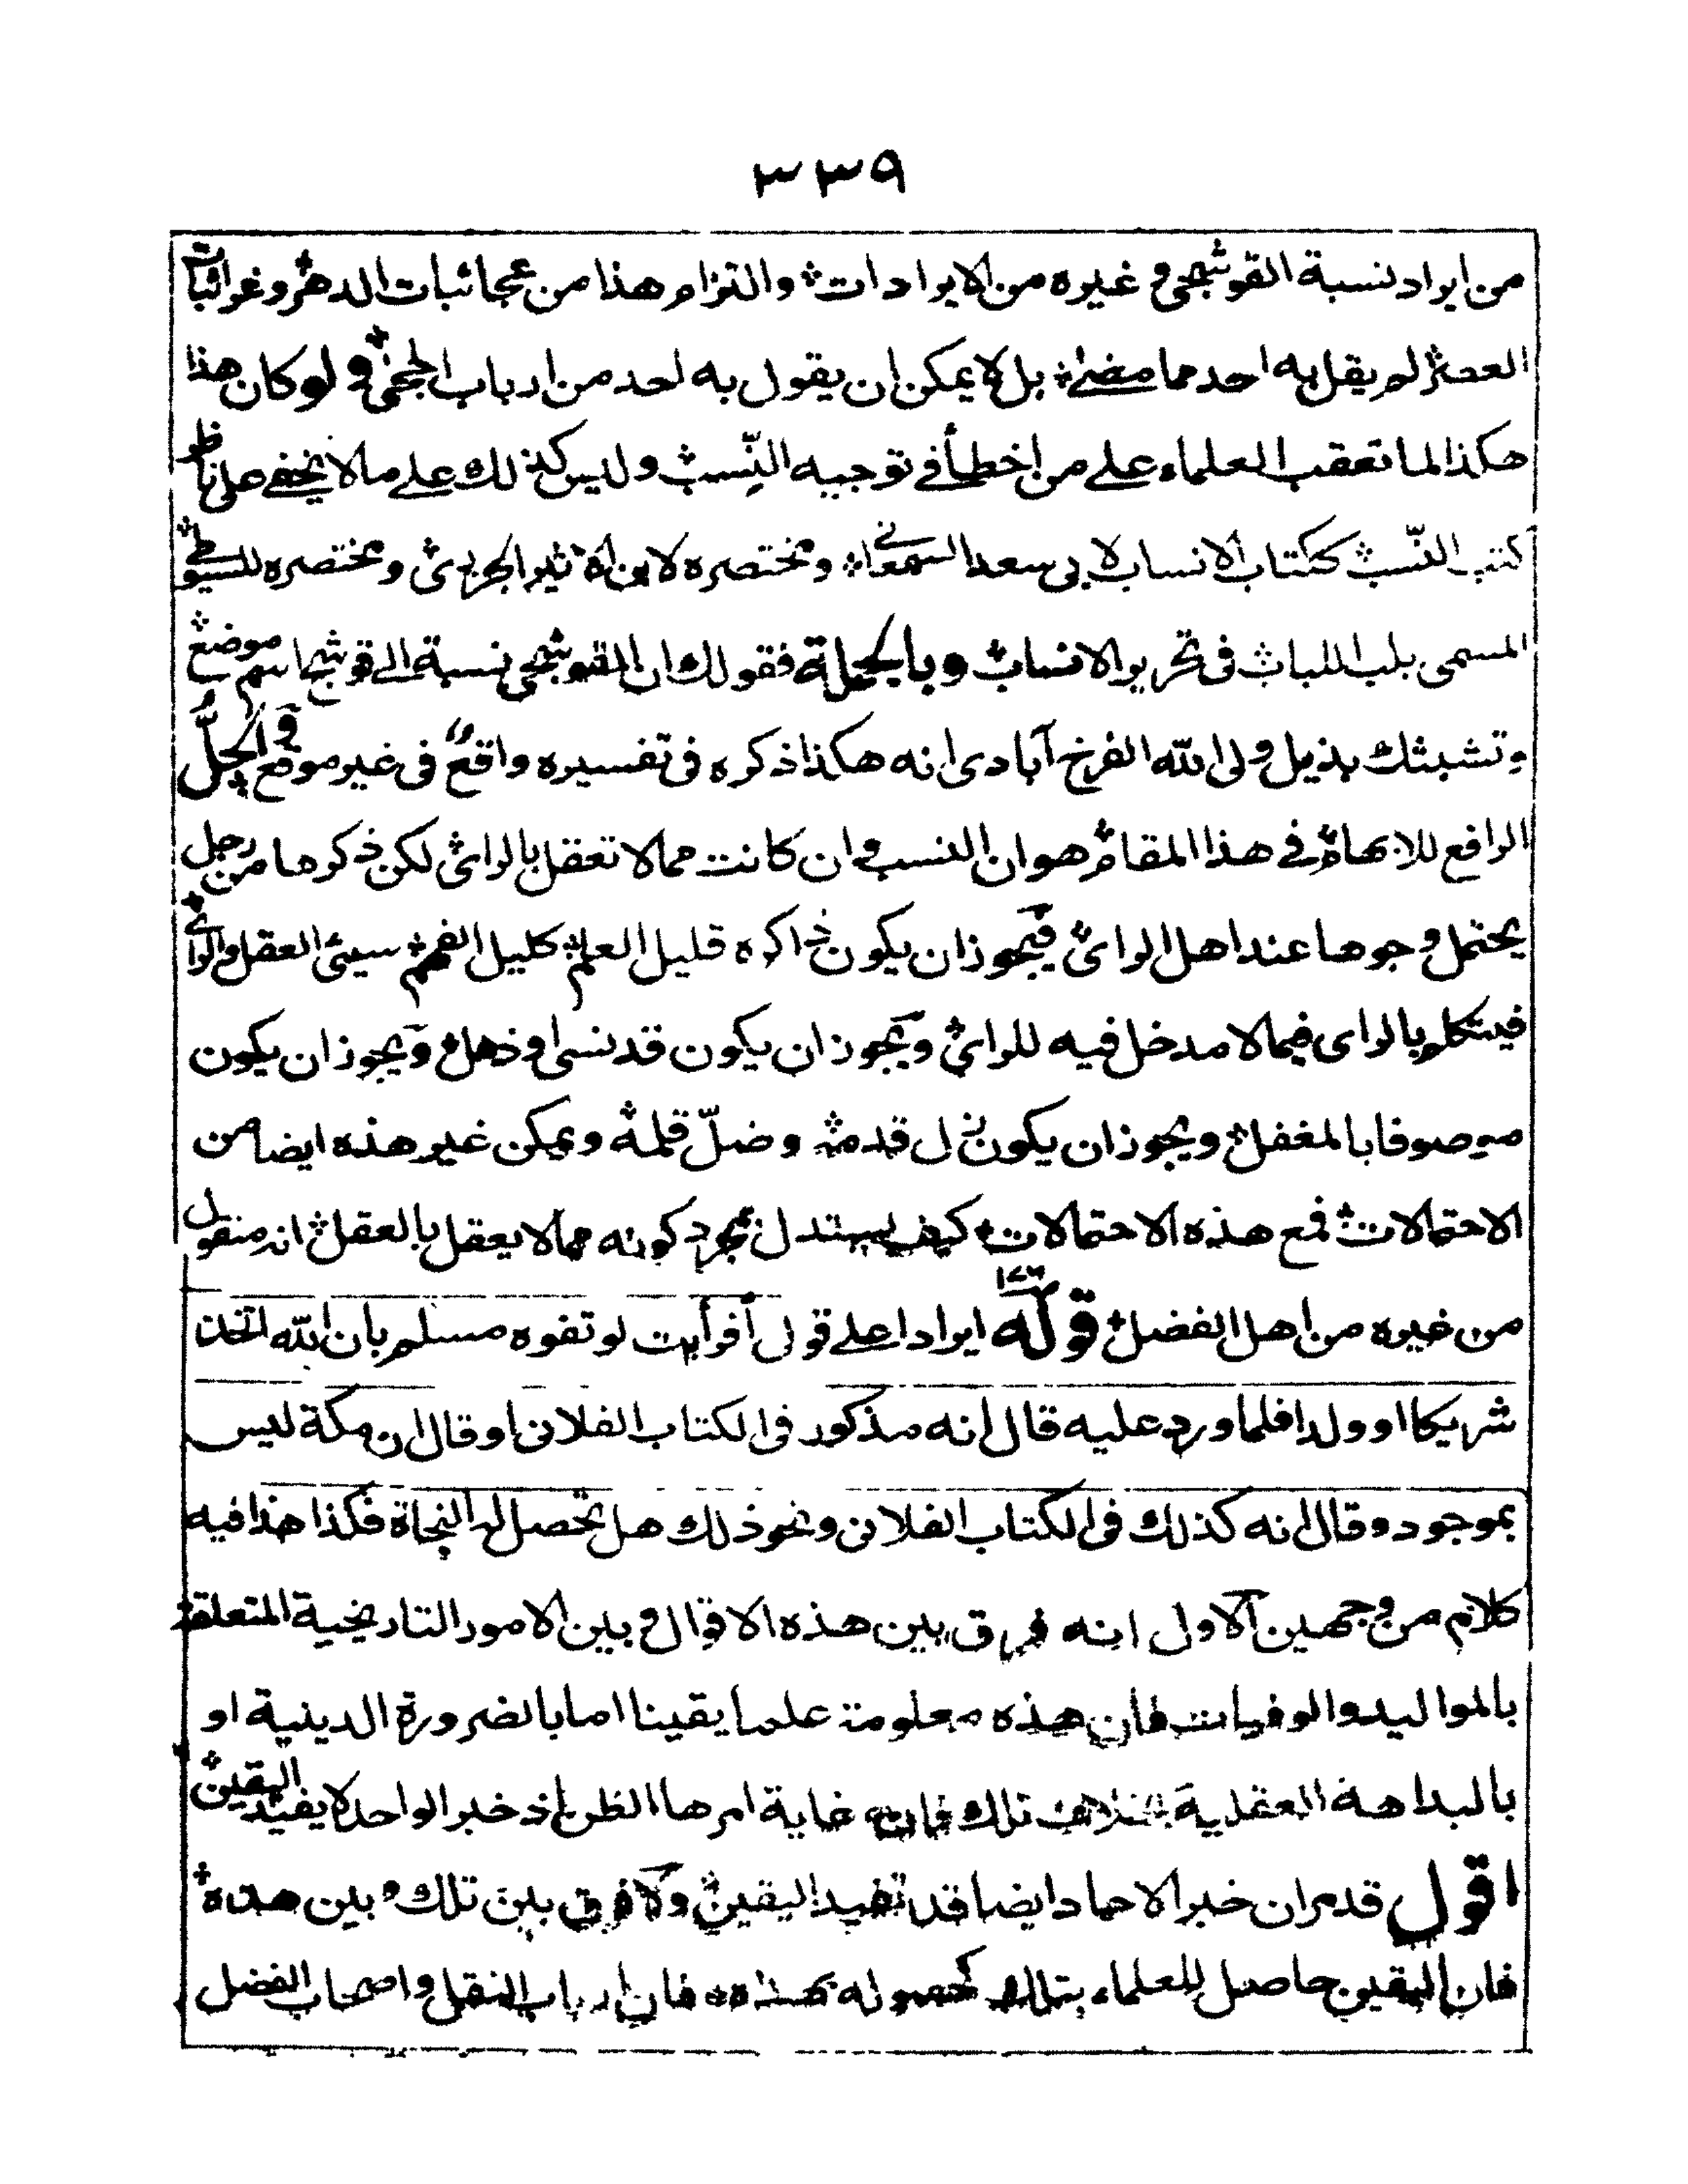 ٣٣٩
من ايراد نسبة القوشجى و غيره من الايرادات والتزام هذا من عجائبات الدهر وغرائبات
العصر لم يقل به احد مما مضى بل لا يمكن ان يقول به احد من ارباب الحجى ولو كان هذا
هكذا لما تعقب العلماء على من اخطأ فى توجيه النسب وليس كذلك على ما لا يخفى على ناظر
كتب النّسب ككتاب الانساب لابى سعد السمعانى ومختصره لابن الاثير الجزرى ومختصره للسيوطى
المسمى بلب اللباب فى تحرير الانساب وبالجملة فقولك ان القوشجى نسبة الى قوشج اسم موضع
وتشبثك بذيل ولى الله الفرخ آبادى انه هكذا ذكره فى تفسيره واقع فى غير موقع والحلّ
الرافع للابهام فى هذا المقام هو ان النسب وان كانت مما لا تعقل بالراى لكن ذكرها من رجل
يحتمل وجوها عند اهل الراى فيجوز ان يكون ذاكره قليل العلم كليل الفهم سيئ العقل والراى
فيتكلم بالراى فيما لا مدخل فيه للراى ويجوز ان يكون قد نسى او ذهل ويجوز ان يكون
موصوفا بالمغفل ويجوز ان يكون زل قدمه وضلّ قلمه ويمكن غير هذه ايضا من
الاحتمالات فمع هذه الاحتمالات كيف يستدل بمجرد كونه مما لا يعقل بالعقل انه منقول
من غيره من اهل الفضل قوله ١٧٦ ايرادا على قولى أفرأيت لو تفوه مسلم بان الله اتخذ
شريكا او ولدا فلما ورد عليه قال انه مذكور فى الكتاب الفلانى او قال ان مكة ليس
بموجود وقال انه كذلك فى الكتاب الفلانى ونحو ذلك هل تحصل له النجاة فكذا هذا فيه
كلام من وجهين الاول انه فرق بين هذه الاقوال وبين الامور التاريخية المتعلقة
بالمواليد والوفيات فان هذه معلومة علما يقينا اما بالضرورة الدينية او
بالبداهة العقلية بخلاف تلك فان غاية امرها الظن اذ خبر الواحد لا يفيد اليقين
اقول قد مر ان خبر الاحاد ايضا قد تفيد اليقين ولا فرق بين تلك وبين هذه
فان اليقين حاصل للعلماء بتلك كحصوله بهذه فان ارباب النقل واصحاب الفضل